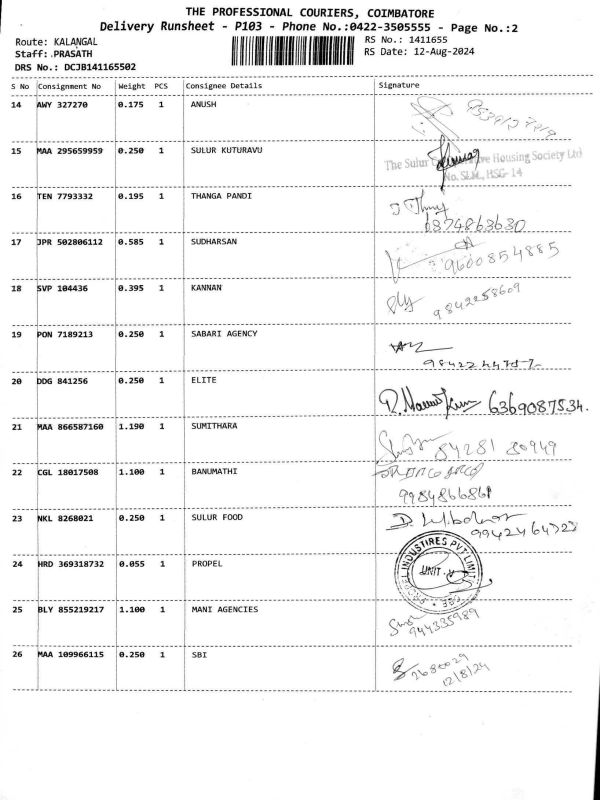 THE PROFESSIONAL COURIERS, COIMBATORE
Delivery Runsheet - P103 - Phone No.:0422-3505555 - Page No.:2
Route: KALANGAL RS No.: 1411655
Staff: PRASATH RS Date: 12-Aug-2024
DRS No.: DCJB141165502
S No Consignment No Weight PCS Consignee Details Signature
14 AWY 327270 0.175 1 ANUSH
15 MAA 295659959 0.250 1 SULUR KUTURAVU
The Sulur Housing Society Ltd
No. SLM., HSG-14
16 TEN 7793332 0.195 1 THANGA PANDI
6874863630
17 JPR 502806112 0.585 1 SUDHARSAN
9600854885
18 SVP 104436 0.395 1 KANNAN
9842258609
19 PON 7189213 0.250 1 SABARI AGENCY
20 DDG 841256 0.250 1 ELITE
6369087534.
21 MAA 866587160 1.190 1 SUMITHARA
84281 80949
22 CGL 18017508 1.100 1 BANUMATHI
9984866861
23 NKL 8268021 0.250 1 SULUR FOOD
24 HRD 369318732 0.055 1 PROPEL
PROPEL INDUSTRIES PVT LIMITED
UNIT-V
CBE
25 BLY 855219217 1.100 1 MANI AGENCIES
944335989
26 MAA 109966115 0.250 1 SBI
2680029
12/8/24